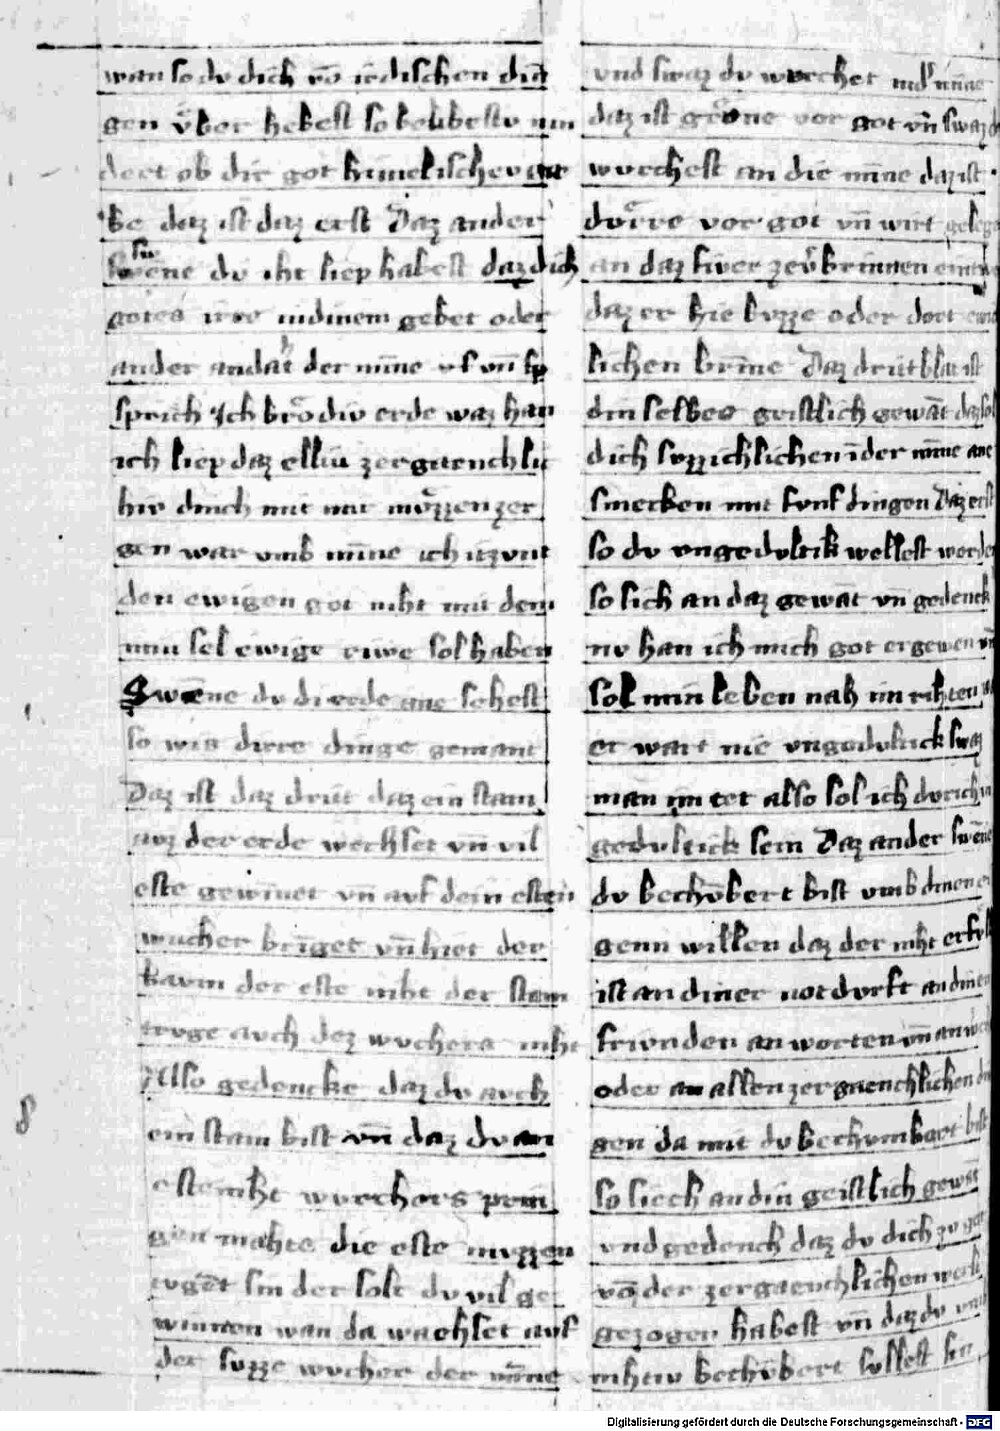 wan so dv dich vō irdischen din
gen v̊ber hebest so belibestv nin
dert ob dir got himelischev
be daz ist daz erst Daz ander
Swene dv iht liep habest daz dich
gotes irre in dinem gebet oder
ander andaht der mīne vf vn̄
sprich Ich brōdiv erde waz han
ich liep daz elliu zergaenchli
hiv dinch mit mir mvͤzzen zer
gen war vmb mīne ich itzvnt
den ewigen got niht mit dem
min sel ewige riwe sol haben
Swēne dv di erde ane sehest
so wis dirre dinge gemant
Daz ist daz drit daz ein stam
avz der erde wechset vn̄ vil
este gewīnet vn̄ avf dem esten
wucher brīget vn̄ hiet der
bavm der este niht der stam
trvge avch dez wvchers niht
Also gedencke daz dv avch
ein stam bist vn̄ daz dv an
este niht wvchers prin
gen mahte die este mvzzen
tvgēt sin der solt dv vil ge
winnen wan da wachset avf
der svzze wvcher der mīne
vnd swaz dv wvrchest
daz ist grvͤne vor got vn̄ swaz dv
wvrchest an die mīne daz ist
dvͤrre vor got vn̄ wirt geleg
an daz fiver zev̊brinnen
daz er hie bvzze oder dort ewic
lichen brīne Daz drit blat ist
din selbes geistlich gewāt daz sol
dich svzzichlichen ī der mīne ane
smecken mit fvnf dingen Daz erst
so dv vngedvltik wellest werden
so sich an daz gewāt vn̄ gedenck
nv han ich mich got ergeven vn̄
sol min leben nah im rihten
er wart nie vngedvltick swaz
man im tet also sol ich dvrich in
gedvltick sein Daz ander swēne
dv bechv̄bert bist vmb dinen ei
genn willen daz der niht erfvl
ist an diner notdvrft an dinen
frivnden an worten vn̄ an
oder an allen zergaenchlichen din
gen da mit dv bechvmbert bist
so siech an din geistlich gewāt
vnd gedench daz dv dich zv got
vō der zergaenchlichen werlt
gezogen habest vn̄ daz dv
nihtiv bechv̄bert sullest sin
Digitalisierung gefördert durch die Deutsche Forschungsgemeinschaft - DFG